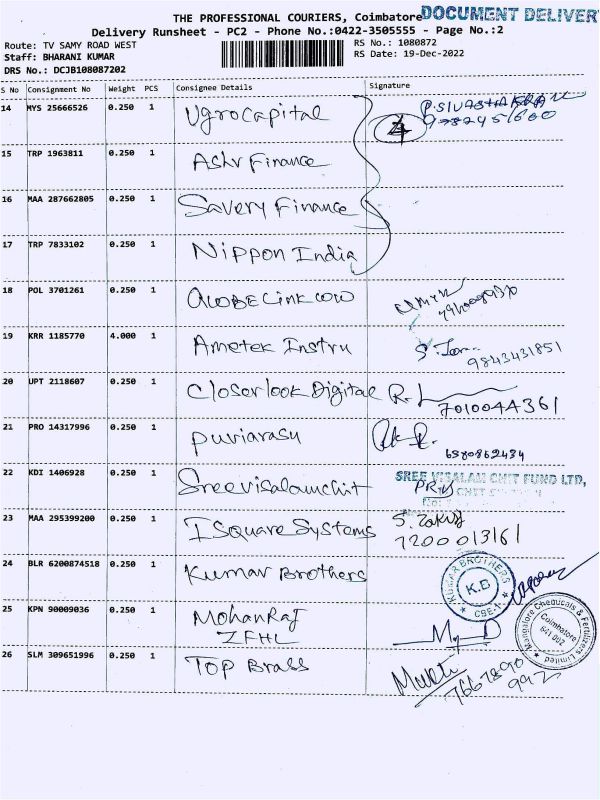 THE PROFESSIONAL COURIERS, Coimbatore DOCUMENT DELIVERY
Delivery Runsheet - PC2 - Phone No.:0422-3505555 - Page No.:2
Route: TV SAMY ROAD WEST RS No.: 1080872
Staff: BHARANI KUMAR RS Date: 19-Dec-2022
DRS No.: DCJB108087202
S No Consignment No Weight PCS Consignee Details Signature
14 MYS 25666526 0.250 1 UgroCapital
15 TRP 1963811 0.250 1 Ashv Finance
16 MAA 287662805 0.250 1 Savery Finance
17 TRP 7833102 0.250 1 Nippon India
18 POL 3701261 0.250 1
19 KRR 1185770 4.000 1 Ametek Instru 9843431851
20 UPT 2118607 0.250 1 Closerlook Digital R. 701004A361
21 PRO 14317996 0.250 1 Puviarasu 6380862434
22 KDI 1406928 0.250 1 Sreevisalamchit SREE VISALAM CHIT FUND LTD,
23 MAA 295399200 0.250 1 I Square Systems 7200013161
24 BLR 6200874518 0.250 1 Kumar Brothers KUMAR BROTHERS K.B CBE-1
25 KPN 90009036 0.250 1 MohanRaj
IFHL
Mangalore Chemicals & Fertilizers Limited
Coimbatore
641 002
26 SLM 309651996 0.250 1 Top Brass 7667890
992